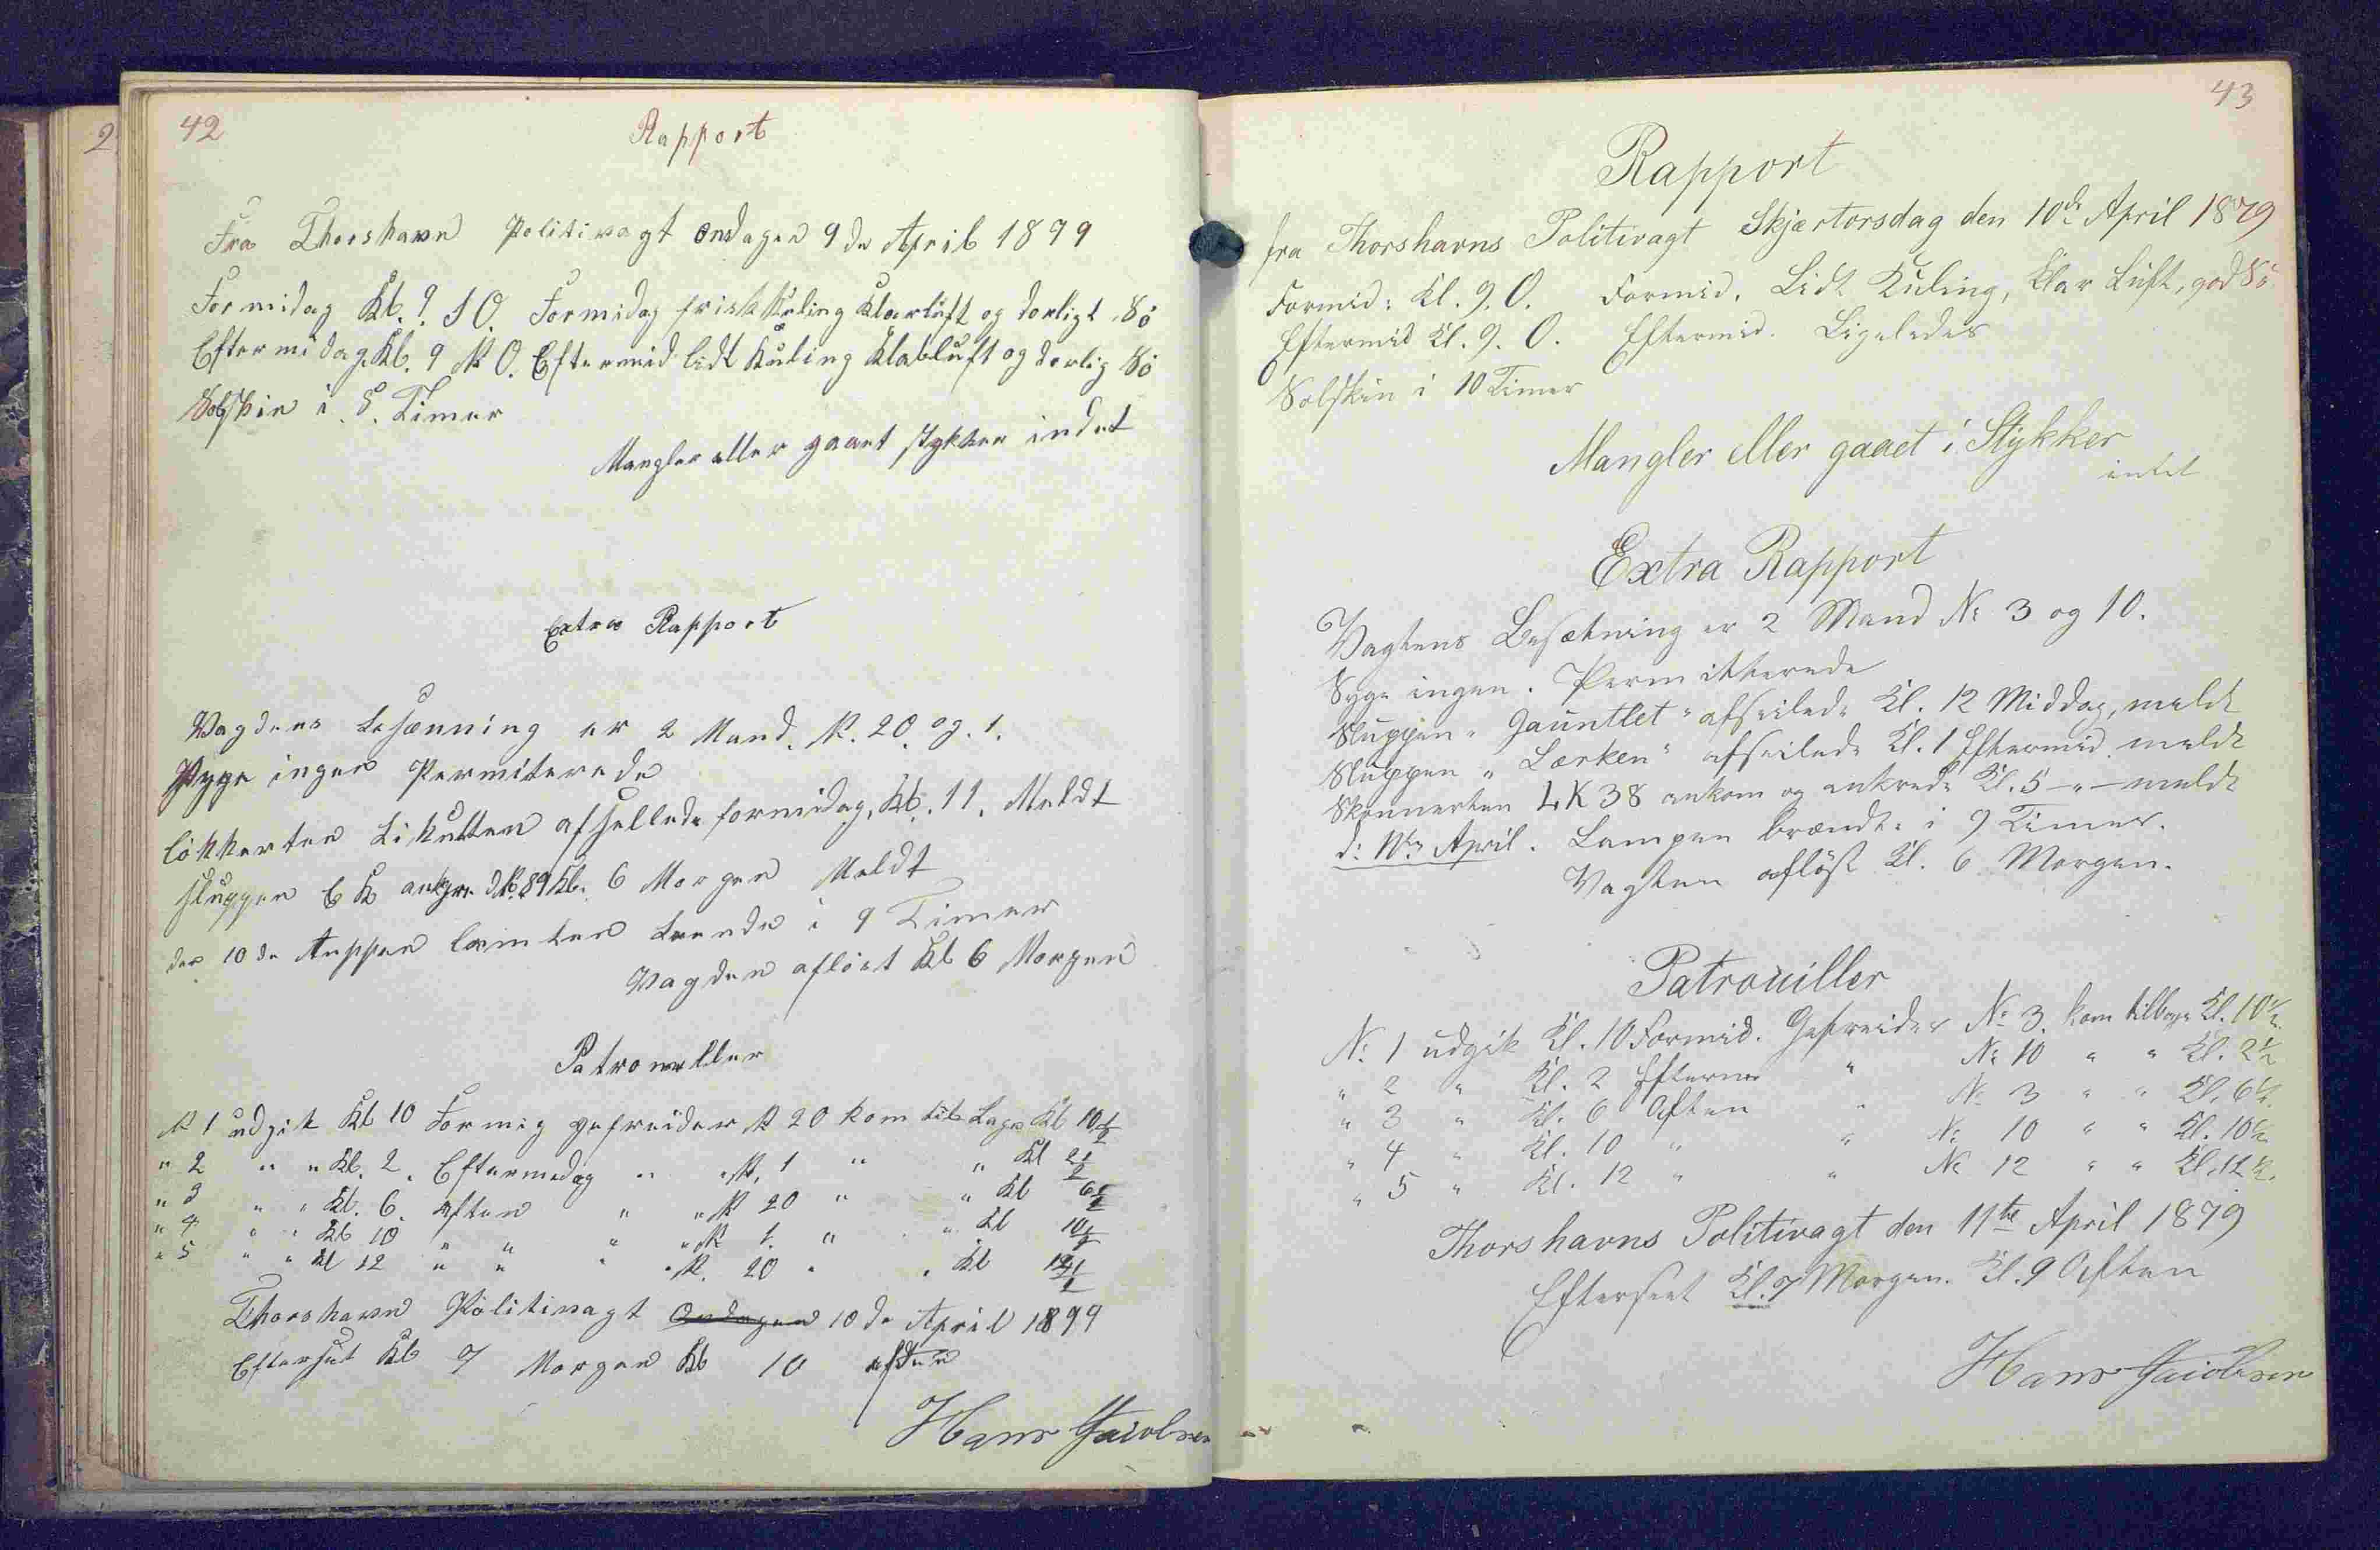 42
Rapport
Fra Thorshavn Politivagt Onsdagen 9 de April 1879
Formidag Kl. 9. S O. Formidag frisk Kuling Klarluft og dorligt Sö
Eftermidag. Kl. 9 N O. Eftermid lidt Kuling Klarluft og dorlig Sö
Solskin i 8. Timer
Mangler eller gaaet stykker indet
Extra Rapport
Vagdens besænning er 2 Mand. N. 20. og. 1.
Syge ingen Permiterede
afsellede formidag. Kl. 11. Meldt
sluppen Kl. 6 Morgen Meldt
den 10 de lamten brende i 9 Timer
Vagden aflöst Kl 6 Morgen
Patroueller
N 1 udgik Kl 10 Formig gefreider N 20 kom til bage Kl 10 1/2
" 2 " " Kl. 2. Eftermedag " " N. 1 " " Kl 2 1/2
" 3 " " Kl. 6. Aften " " N 20 " " Kl 6 1/2
" 4 " " Kl 10 " " " " N 1. " " Kl 10 1/2
" 5 " " Kl 12 " " " " N. 20 " " Kl 12 1/2
Thorshavn Politivagt Ondagen 10 de April 1879
Eftersét Kl 7 Morgen Kl 10 aften
Hans Jacobsen
43
Rapport
fra Thorshavns Politivagt Skjærtorsdag den 10de April 1879
Formid: Kl. 9. O. Formid. Lidt Kuling, Klar Luft, god Sö
Eftermid Kl. 9. O. Eftermid. Ligeledes
Solskin i 10 Timer
Mangler eller gaaet i Stykker
intet
Extra Rapport
Vagtens Besætning er 2 Mand No 3 og 10.
Syge ingen. Permitterede
Sluppen "Gauntlet" afseilede Kl. 12 Middag, meldt
Sluppen "Lærken" afseilede Kl. 1 Eftermid. meldt
Skonnerten LK 38 ankom og ankrede Kl. 5 — " — meldt
d: 11te April. Lampen brændte i 9 Timer.
Vagten aflöst Kl. 6 Morgen.
Patrouiller
No 1 udgik Kl. 10 Formid. Gefreider No 3. kom tilbage Kl. 10 1/2.
" 2 " Kl. 2 Efterm " No 10 " " Kl. 2 1/2
" 3 " Kl. 6 Aften " No 3 " " Kl. 6 1/2.
" 4 " Kl. 10 " " No 10 " " Kl. 10 1/2
" 5 " Kl. 12 " " No 12 " " Kl. 12 1/2.
Thorshavns Politivagt den 11te April 1879
Efterseet Kl. 7 Morgen. Kl. 9 Aften
Hans Jacobsen